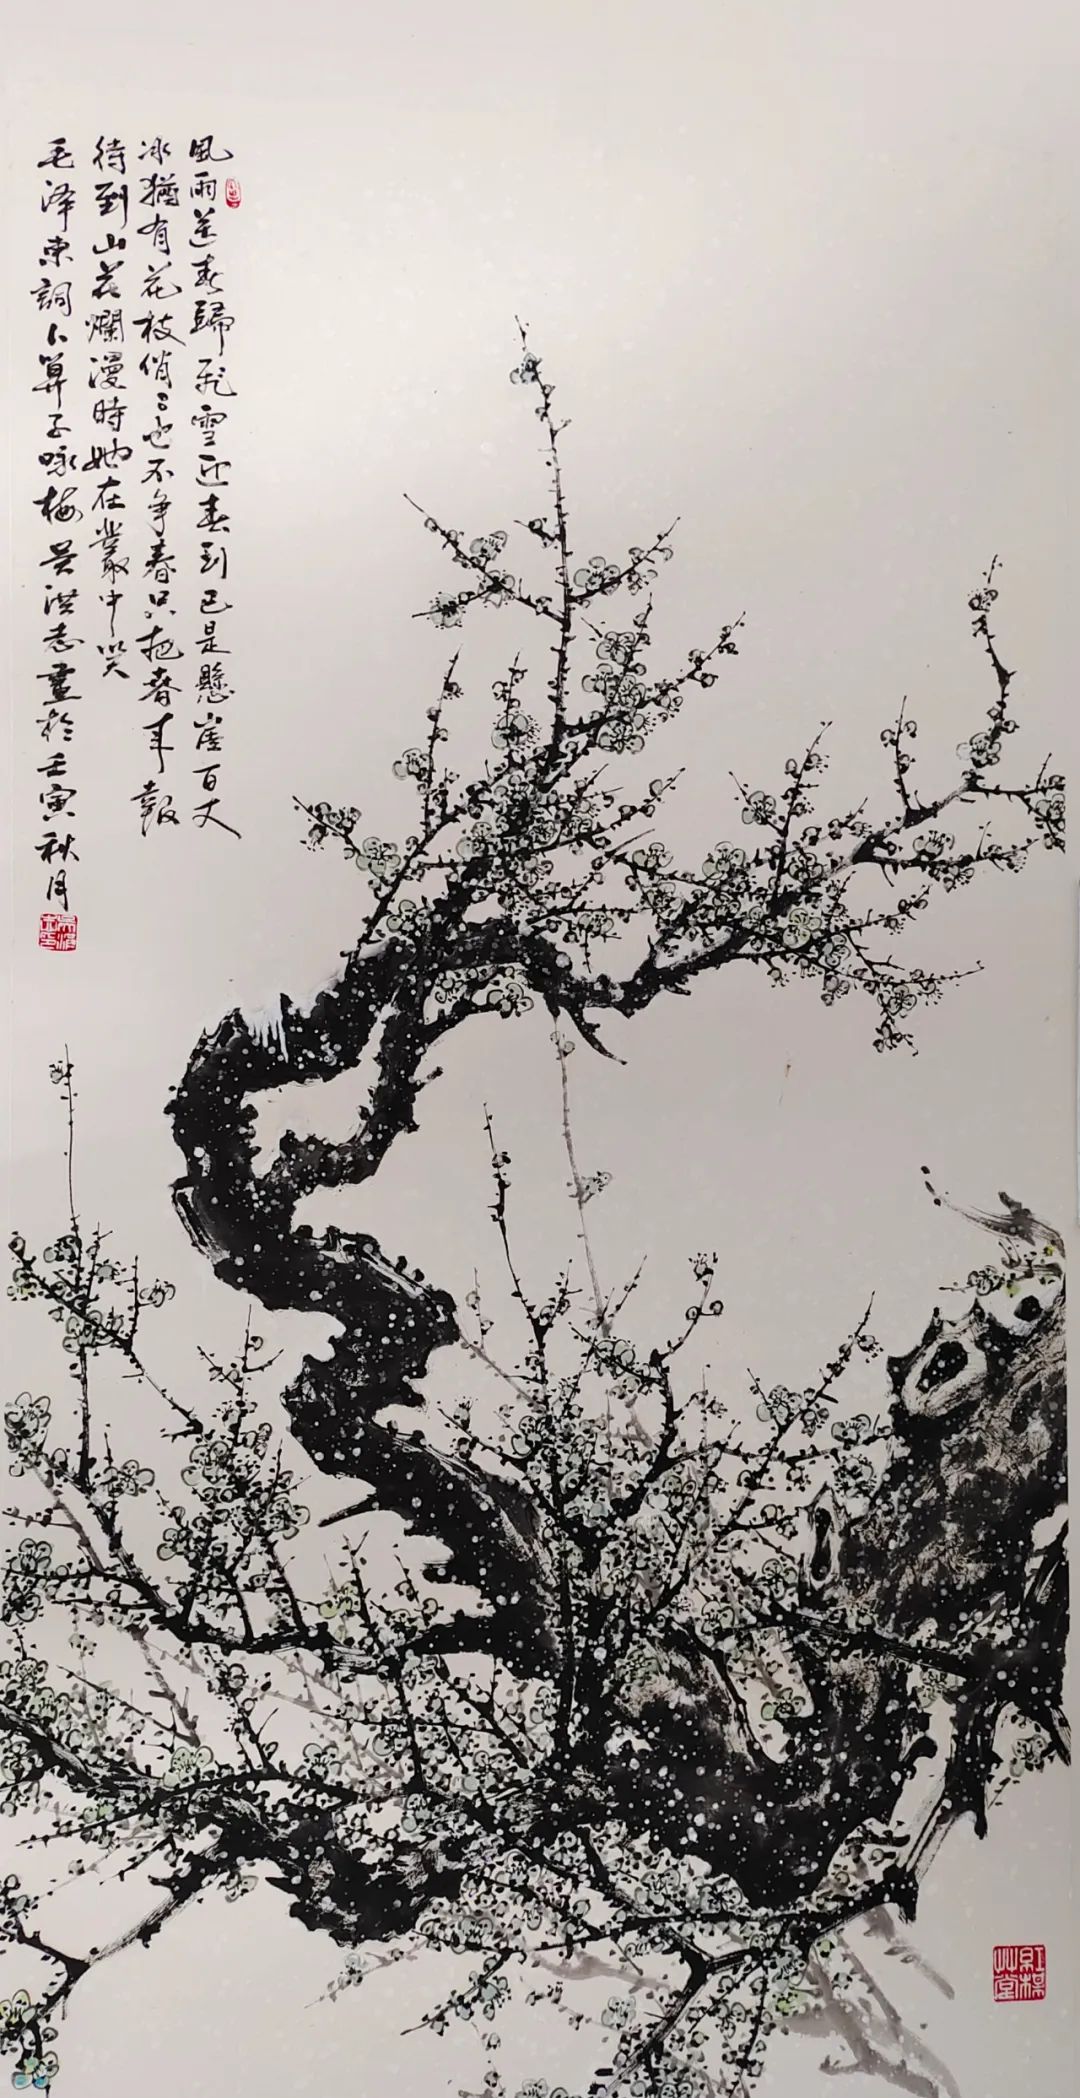 風雨送春歸飛雪迎春到已是懸崖百丈
冰猶有花枝俏〻也不争春只把春来報
待到山花爛漫時她在叢中笑
毛泽東詞卜算子咏梅吴洪志畫於壬寅秋月
紅梅草堂